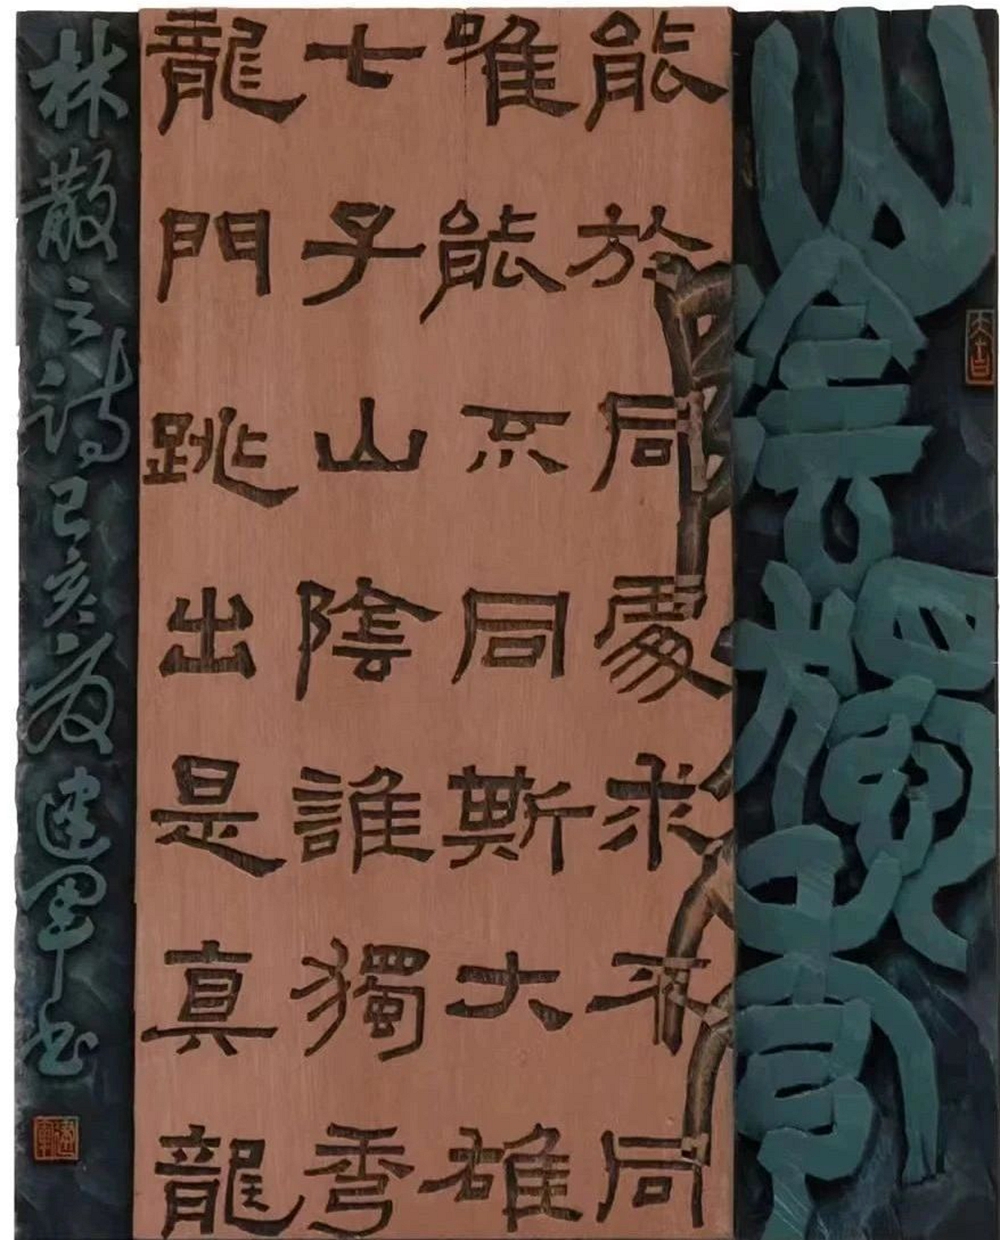 山侌獨秀
大吉
能於同處求不同
唯能不同斯大雄
七子山陰誰獨秀
龍門跳出是真龍
林散之詩己亥夏建軍书
建軍